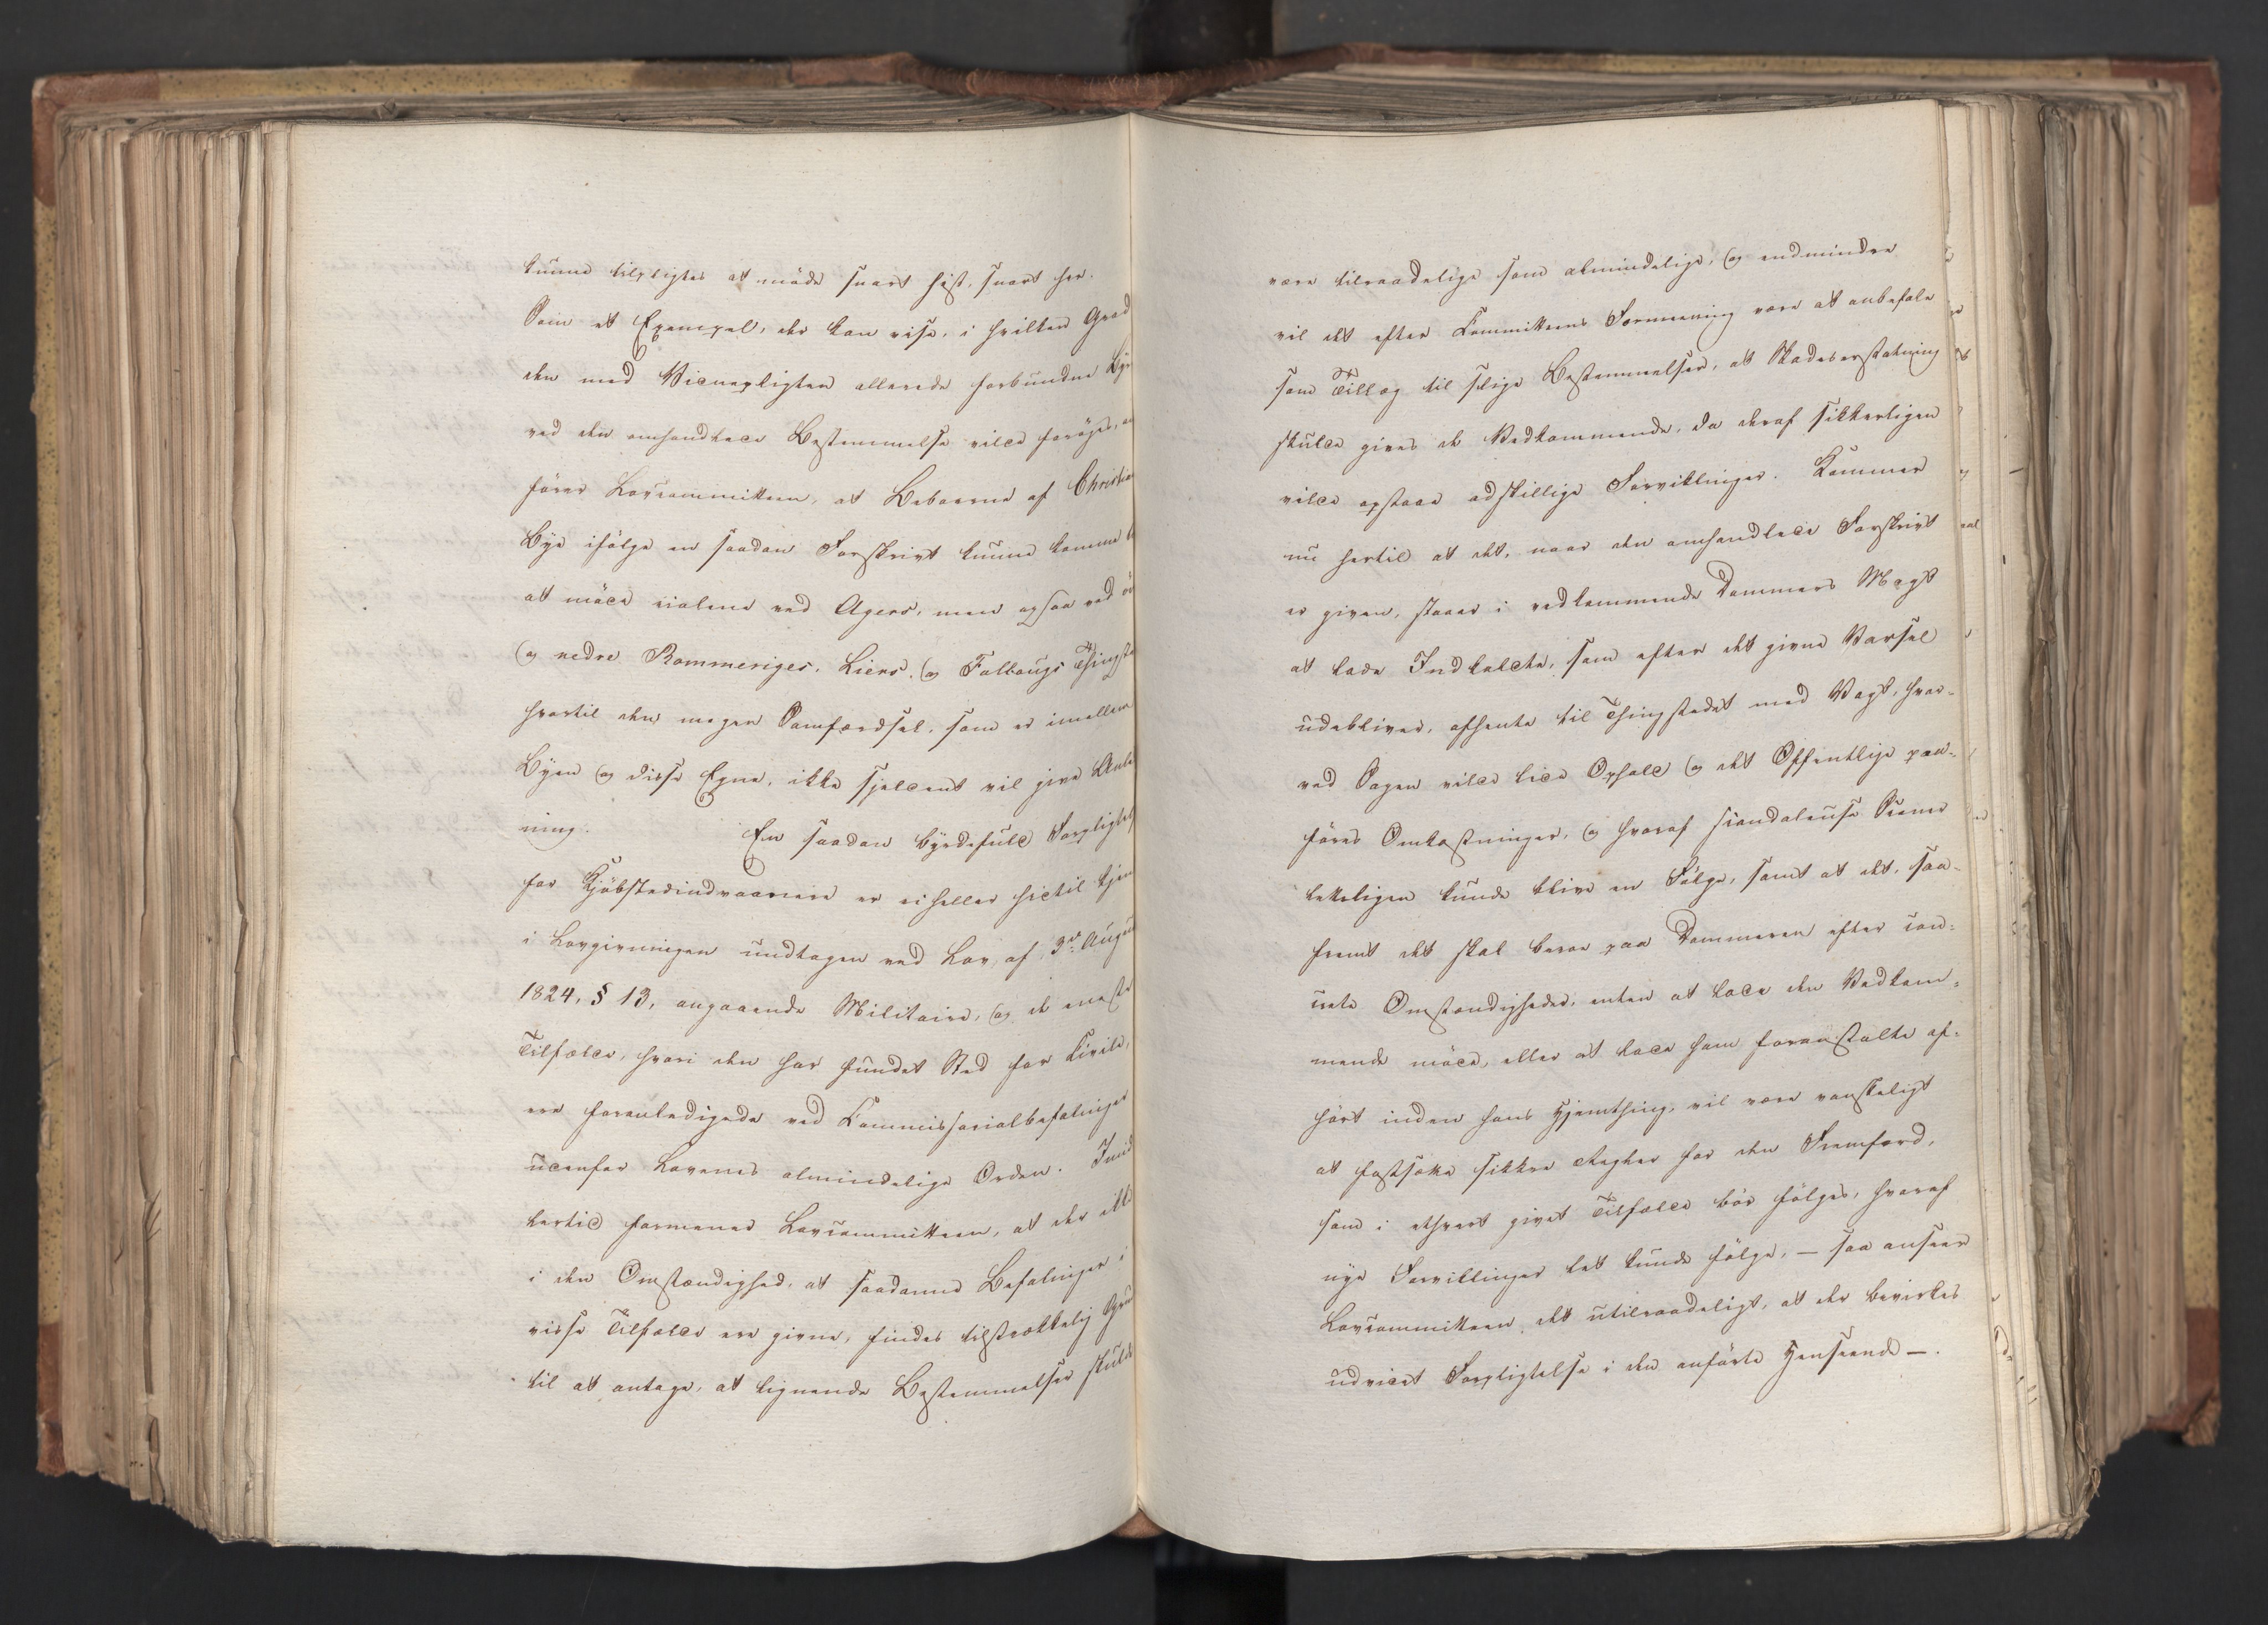 kunne tilpligtes at möde snart hist, snart her.
Som et Exempel, der kan vise, i hvilken Grad
den med Vidnepligten allerede forbundne Byr
ved den omhandlede Bestemmelse vilde foröges, an
förer Lovcommitteen, at Beboerne af Christia
Bye ifölge en saadan Forskrivt kunne komme
at möde ei alene ved Agers, men ogsaa ved
og nedre Rommeriges, Liers, og Follougs Thingste
hvortil den megen Samfærdsel, som er imellem
Byen og disse Egne, ikke sjeldent vil give Anle
ning. En saadan byrdefuld Forpligtel
for Kjöbstedindvaanere er ei heller hidtil kjen
i Lovgivningen undtagen ved Lov af 3die Augu
1824, § 13, angaaende Militaire, og de eneste
Tilfælde, hvori den har fundet Sted for Civile,
ere foranledigede ved Commissorialbefalinger
udenfor Lovenes almindelige Orden. Imid
lertid formener Lovcommitteen, at der ikke
i den Omstændighed, at saadanne Befalinger i
visse Tilfælde ere givne, findes tilstrækkelig Grun
til at antage, at lignende Bestemmelser skulde
være tilraadelige som almindelige, og endmindre
vil det efter Committeens Formeening være at anbefale
som Tillæg til slige Bestemmelser, at Skadeserstatning
skulde gives de Vedkommende, da deraf sikkerligen
vilde opstaae adskillige Forviklinger. Kommer
nu hertil at det, naar den omhandlede Forskrivt
er given, staaer i vedkommende Dommers Magt
at lade Indkaldte, som efter det givne Varsel
udebliver, afhente til Thingstedet med Vagt, hvor-
ved Sagen vilde lide Ophold og det Offentlige paa-
föres Omkostninger, og hvoraf scandaleuse Scener
letteligen kunde blive en Fölge, samt at det, saa-
fremt det skal beroe paa Dommeren efter con-
crete Omstændigheder, enten at lade den Vedkom-
mende möde, eller at lade ham foranstalte af-
hört inden hans Hjemthing, vil være vanskeligt
at fastsætte sikkre Regler for den Fremfærd,
som i ethvert givet Tilfælde bör fölges, hvoraf
nye Forviklinger let kunde fölge, — saa anseer
Lovcommitteen det utilraadeligt, at der bevirkes
udvidet Forpligtelse i den anförte Henseende —.